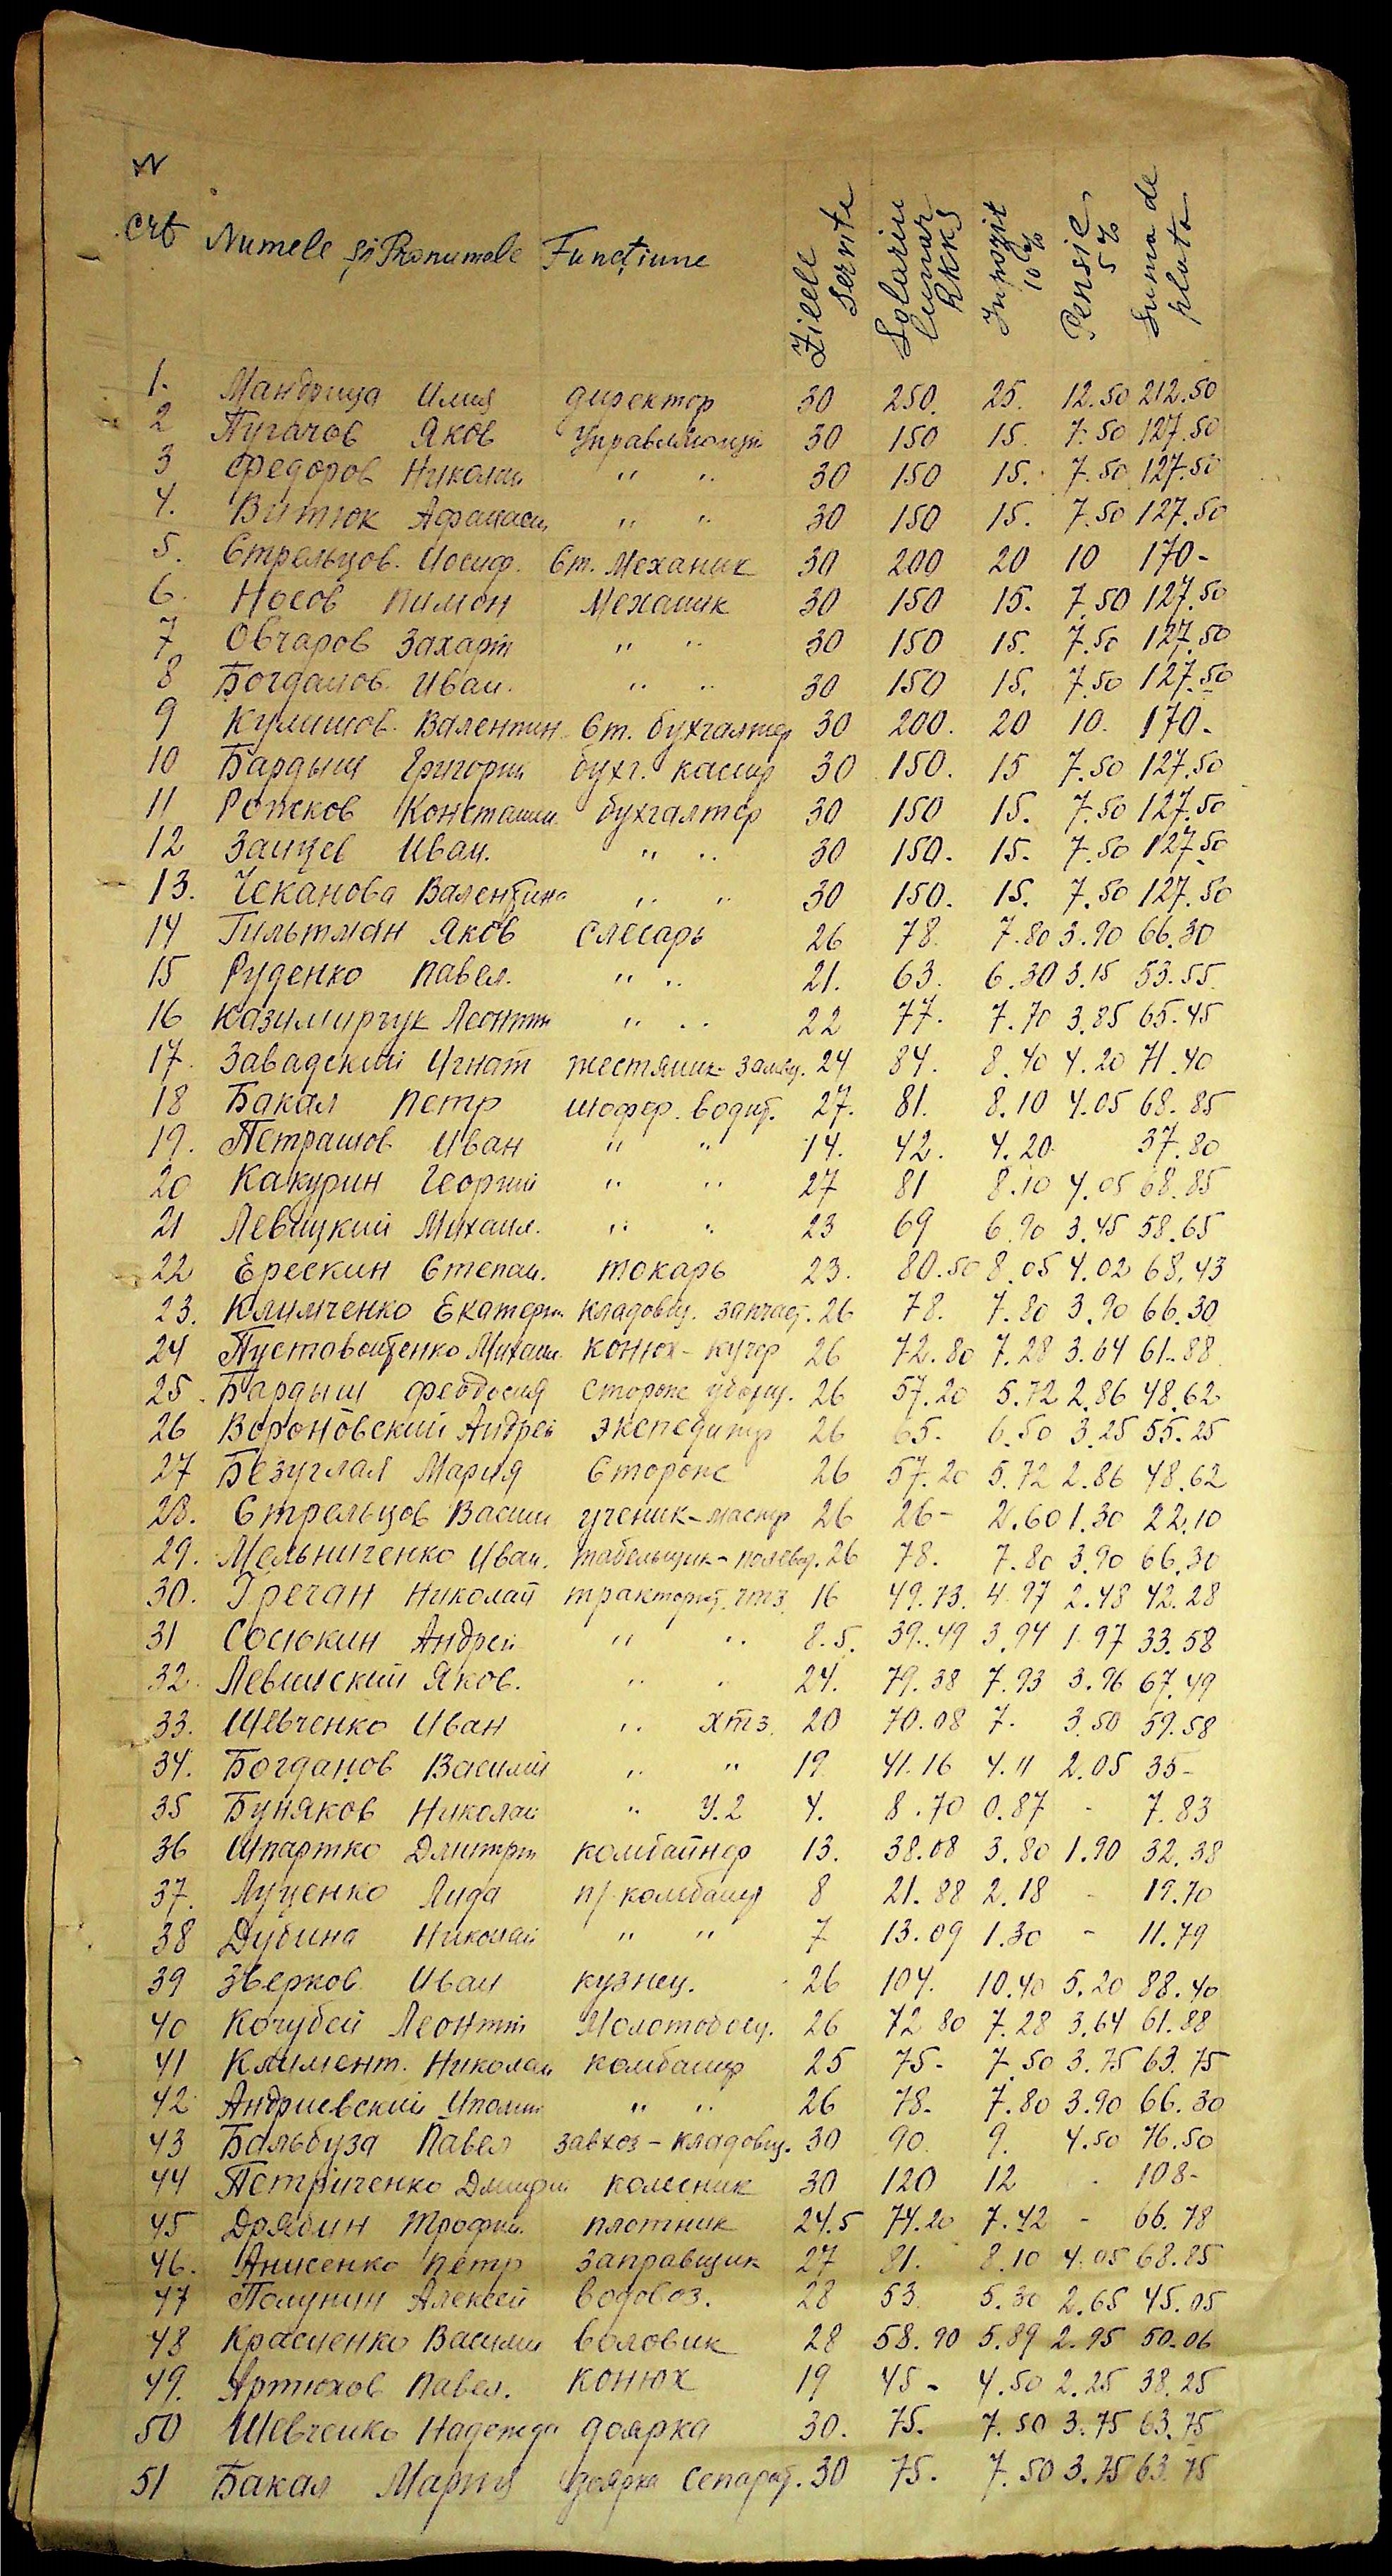 N
crt Numele și Pronumele Funcțiune Zilele servite Salariu lunar RKKS Impozit 10% Pensie 5% Suma de plata
1. Мандрица Илия директор 30 250. 25. 12.50 212.50
2 Пугачов Яков Управляющий 30 150 15. 7.50 127.50
3 Федоров Николай " " 30 150 15. 7.50 127.50
4. Витюк Афанаси " " 30 150 15. 7.50 127.50
5. Стрельцов. Иосиф. Ст. Механик 30 200 20 10 170-
6. Носов Пимон Механик 30 150 15. 7.50 127.50
7 Овчаров Захарт " " 30 150 15. 7.50 127.50
8 Богданов. Иван. " " 30 150 15. 7.50 127.50
9 Кулишов. Валентин Ст. бухгалтер 30 200. 20 10. 170-
10 Бардыш Григорий бухг. кассир 30 150. 15 7.50 127.50
11 Рожков Констант. бухгалтер 30 150 15. 7.50 127.50
12 Зайцев Иван. " " 30 150. 15. 7.50 127.50
13. Чеканова Валентина " " 30 150. 15. 7.50 127.50
14 Гильтман Яков Слесарь 26 78. 7.80 3.90 66.30
15 Руденко Павел. " " 21. 63. 6.30 3.15 53.55
16 Казимирчук Леонтий " " 22 77. 7.70 3.85 65.45
17. Завадский Игнат жестяник- 24 84. 8.40 4.20 71.40
18 Бакал Петр шофер. водит. 27. 81. 8.10 4.05 68.85
19. Петрашов Иван " " 14. 42. 4.20 37.80
20 Какурин Георгий " " 27 81 8.10 4.05 68.85
21 Левицкий Михаил. " " 23 69 6.90 3.45 58.65
22 Ерескин Степан. токарь 23. 80.50 8.05 4.02 68.43
23. Климченко Екатерин кладовщ. запчаст. 26 78. 7.80 3.90 66.30
24 Пустовойтенко Михаил. конюх-кучер 26 72.80 7.28 3.64 61.88
25. Бардыш Феодосия сторож уборщ. 26 57.20 5.72 2.86 48.62
26 Вороновский Андрей экспедитор 26 65. 6.50 3.25 55.25
27 Безуглая Мария Сторож 26 57.20 5.72 2.86 48.62
28. Стрельцов Васили ученик-мастер 26 26- 2.60 1.30 22.10
29. Мельниченко Иван. табельщик-полевод. 26 78. 7.80 3.90 66.30
30. Гречан Николай тракторист. чтз. 16 49.73. 4.97 2.48 42.28
31 Сосюкин Андрей " " 8.5. 39.49 3.94 1.97 33.58
32. Левинский Яков. " " 24. 79.38 7.93 3.96 67.49
33. Шевченко Иван " хтз. 20 70.08 7. 3.50 59.58
34. Богданов Василий " " 19 41.16 4.11 2.05 35-
35 Буняков Николай " У.2 4. 8.70 0.87 - 7.83
36 Шпартко Дмитрий комбайнер 13. 38.08 3.80 1.90 32.38
37. Луценко Лида п/комбайнер 8 21.88 2.18 - 19.70
38 Дубина Николай " " 7 13.09 1.30 - 11.79
39 Зверков Иван кузнец. 26 104. 10.40 5.20 88.40
40 Кочубей Леонтий Молотобоец. 26 72 80 7.28 3.64 61.88
41 Климент. Николай комбайнер 25 75- 7.50 3.75 63.75
42 Андриевский Иполит " " 26 78. 7.80 3.90 66.30
43 Бальбуза Павел завхоз-кладовщ. 30 90. 9. 4.50 76.50
44 Петриченко Дмитрий колесник 30 120 12 - 108-
45 Дрябин Трофим. плотник 24.5 74.20 7.42 - 66.78
46. Анисенко Петр заправщик 27 81. 8.10 4.05 68.85
47 Полунин Алексей водовоз. 28 53. 5.30 2.65 45.05
48 Красненко Васили воловик 28 58.90 5.89 2.95 50.06
49. Артюхов Павел. Конюх 19 45- 4.50 2.25 38.25
50 Шевченко Надежда доярка 30. 75. 7.50 3.75 63.75
51 Бакал Мария доярка сепарат. 30 75. 7.50 3.75 63.75